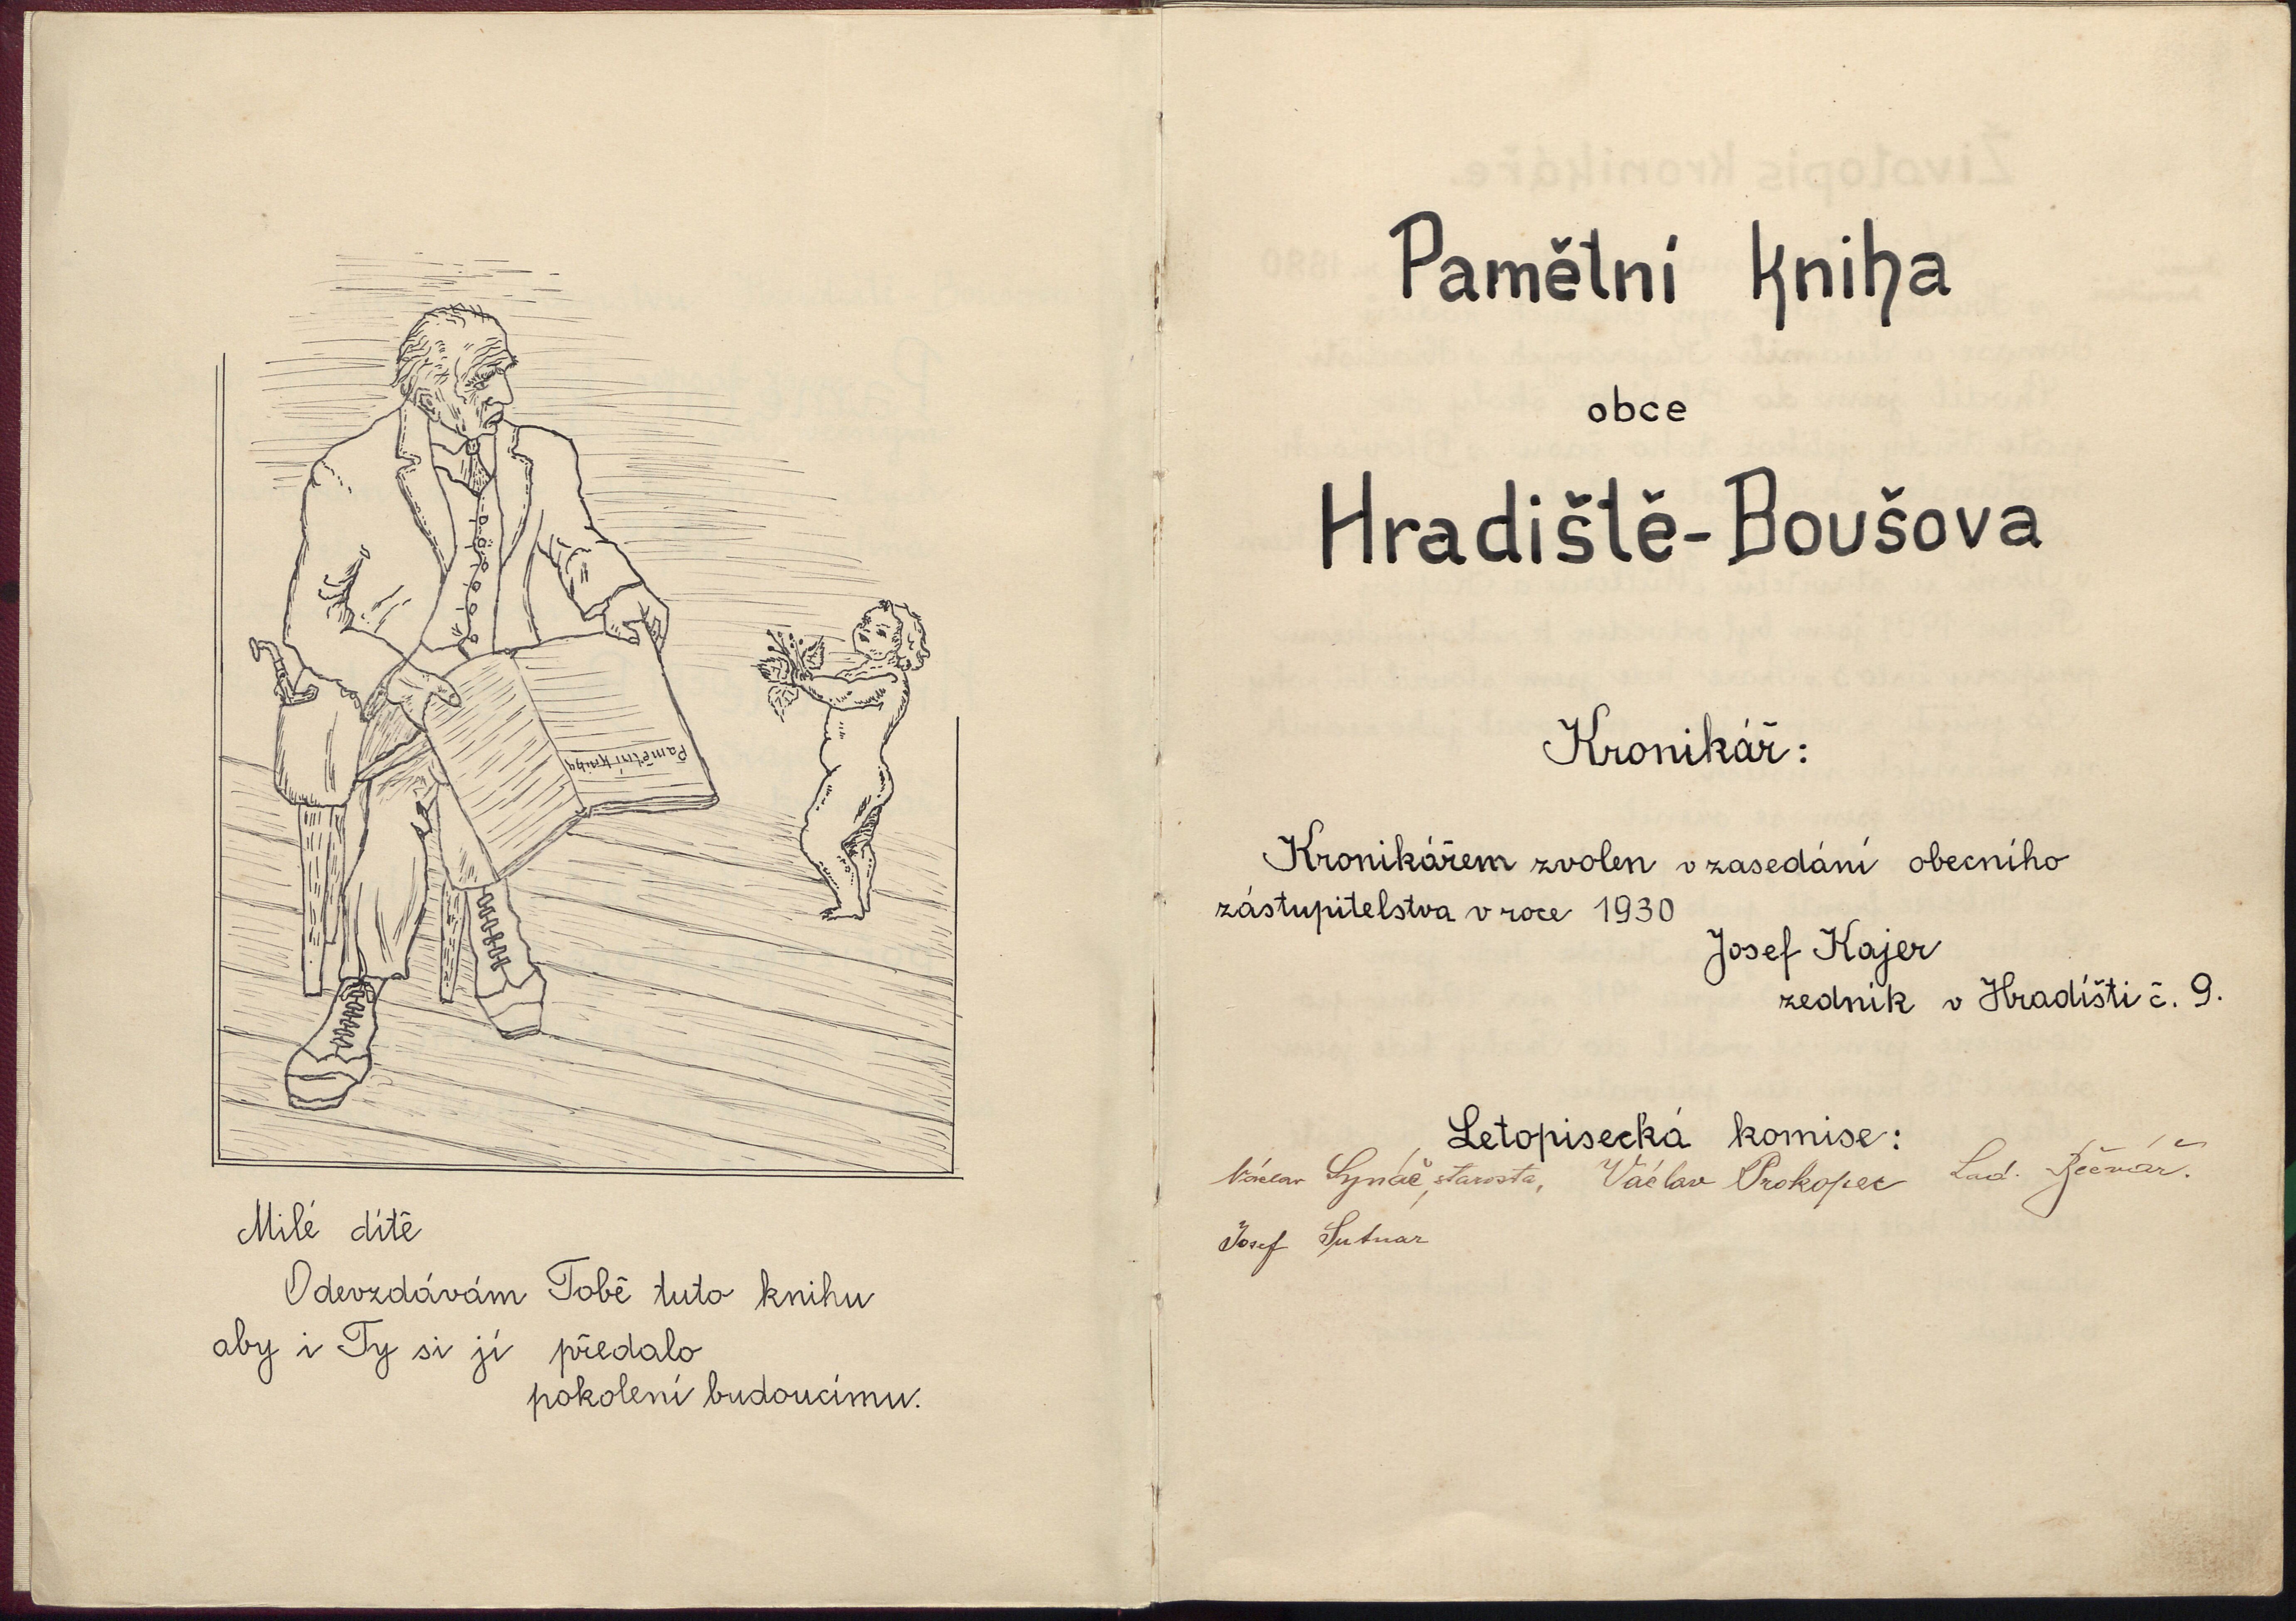 Pamětní kniha
Milé dítě
Odevzdávám Tobě tuto knihu
aby i Ty si jí předalo
pokolení budoucímu.
Pamětní kniha
obce
Hradiště-Boušova
Kronikář:
Kronikářem zvolen v zasedání obecního
zástupitelstva v roce 1930
Josef Kajer
zedník v Hradíšti č. 9.
Letopisecká komise:
Václav starosta, Václav Prokopec Lad. Bečvář.
Josef Sutnar